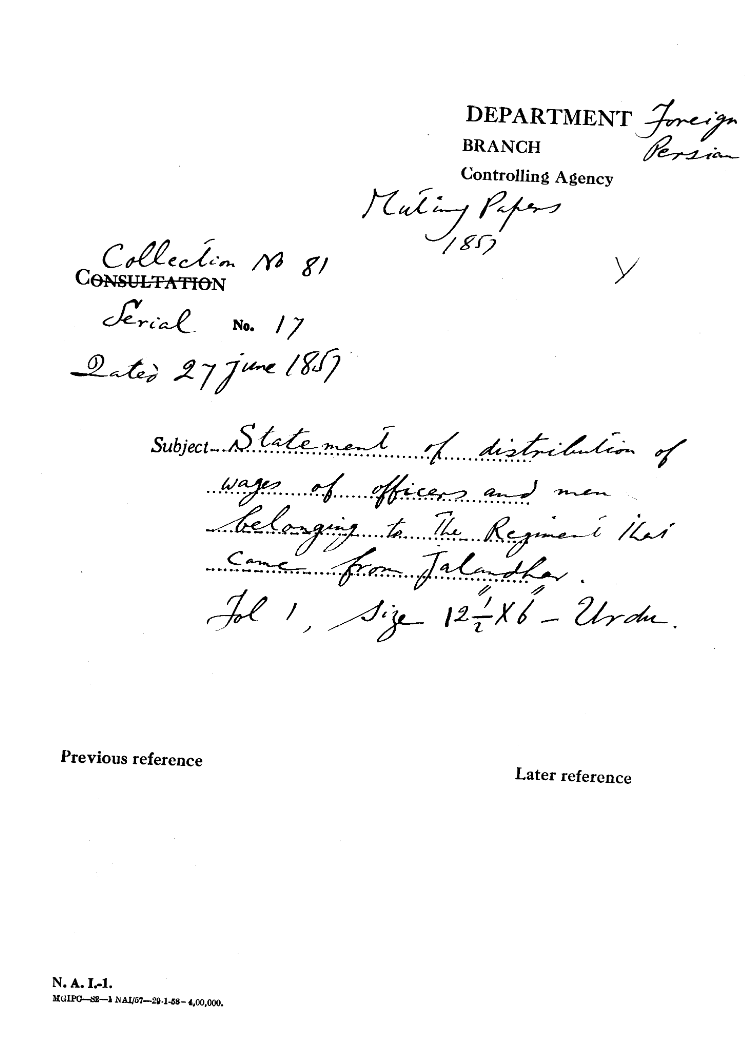 DEPARTMENT Foreign
BRANCH Persian
Controlling Agency
Mutiny Papers
1857
Collection No 81
CONSULTATION
Serial No. 17
Dated 27 June 1857
Subject Statement of distribution of
wages of officers and men
belonging to the Regiment that
came from Jalandhar.
Fol 1, Size 12½" X 6" - Urdu.
Previous reference
Later reference
N. A. I.-1.
MGIPC—S2—1 NAI/57—29-1-58—4,00,000.